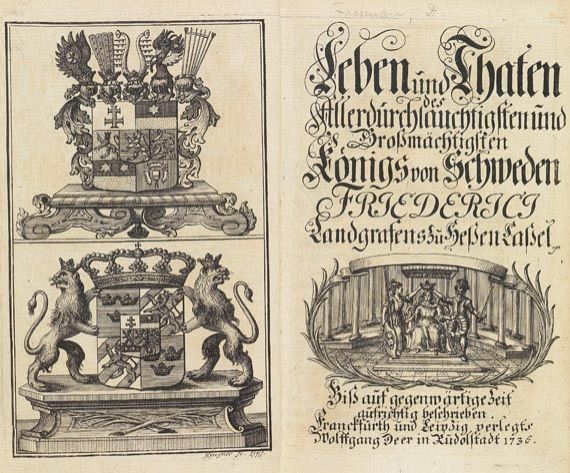 Fassman, D.
Leben und Thaten
des
Allerdurchlauchtigsten und
Großmächtigsten
Königs von Schweden
FRIEDERICI
Landgrafens zu Heßen Caßel,
Biß auf gegenwärtige Zeit
aufrichtig beschrieben.
Franckfurth und Leipzig verlegts
Wolffgang Deer in Rudolstadt 1736.